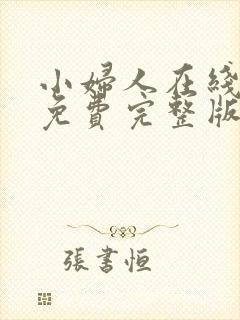 小婦人在綫
免費完整版
張書恒